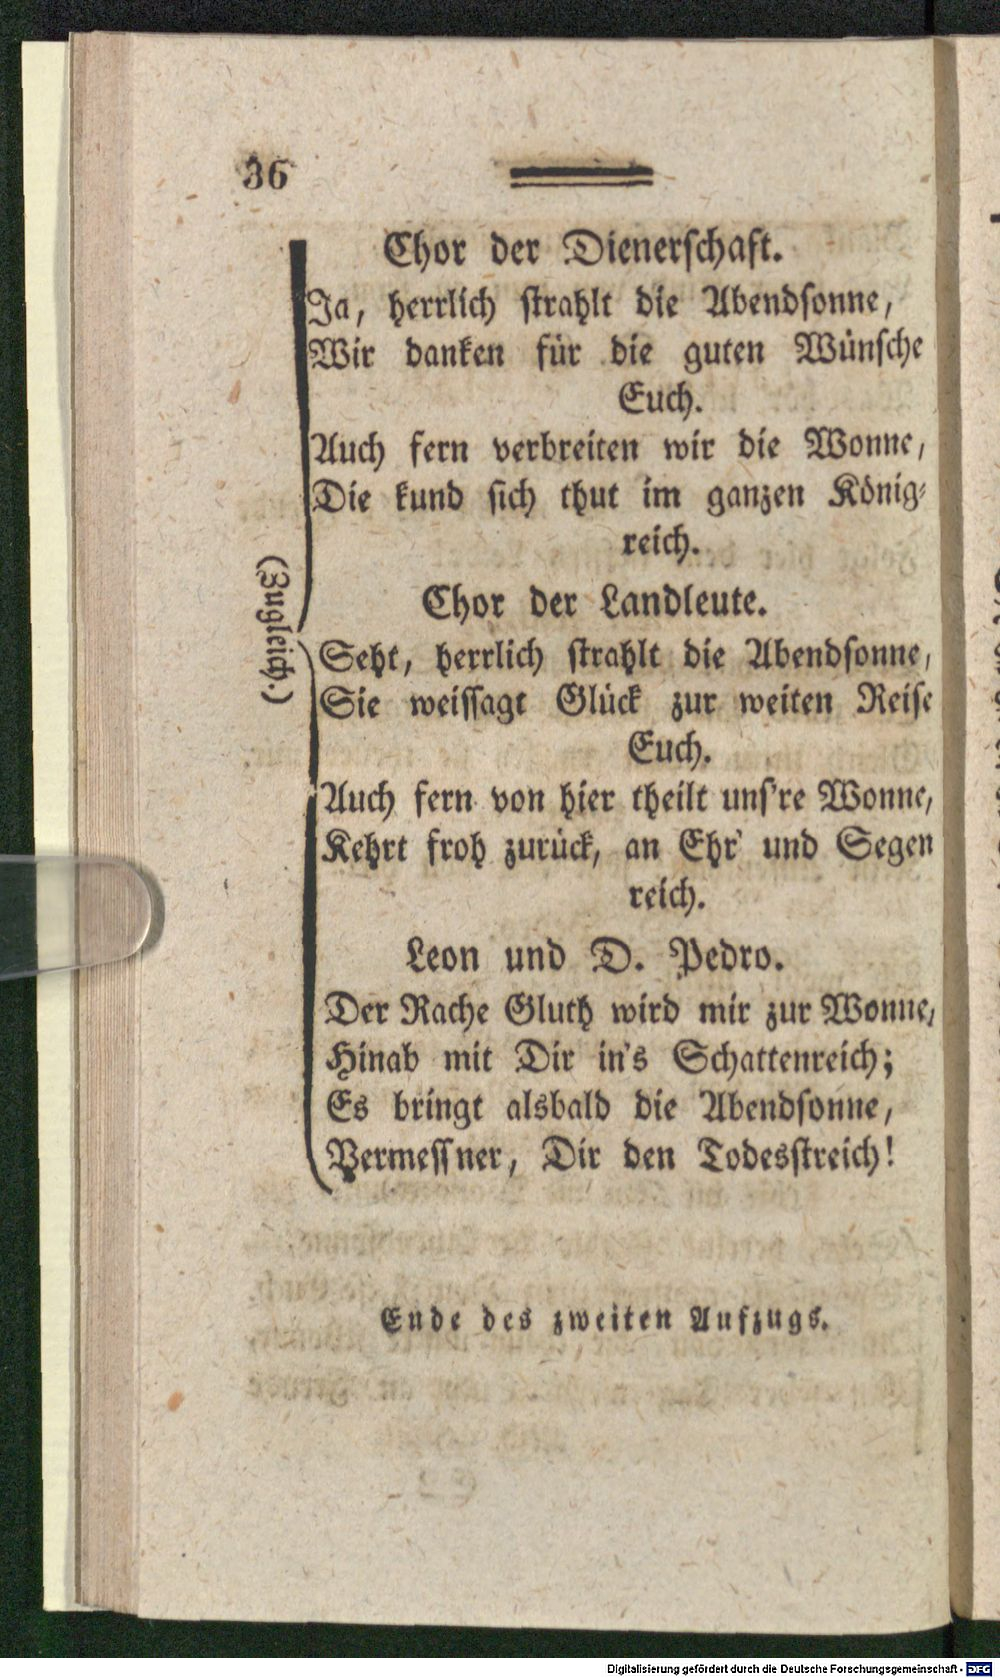 36
Chor der Dienerschaft.
Ja, herrlich strahlt die Abendsonne,
Wir danken für die guten Wünsche
Euch.
Auch fern verbreiten wir die Wonne,
Die kund sich thut im ganzen König-
reich.
(Zugleich.)
Chor der Landleute.
Seht, herrlich strahlt die Abendsonne,
Sie weissagt Glück zur weiten Reise
Euch.
Auch fern von hier theilt uns're Wonne,
Kehrt froh zurück, an Ehr' und Segen
reich.
Leon und D. Pedro.
Der Rache Gluth wird mir zur Wonne,
Hinab mit Dir in's Schattenreich;
Es bringt alsbald die Abendsonne,
Vermessner, Dir den Todesstreich!
Ende des zweiten Aufzugs.
Digitalisierung gefördert durch die Deutsche Forschungsgemeinschaft - DFG